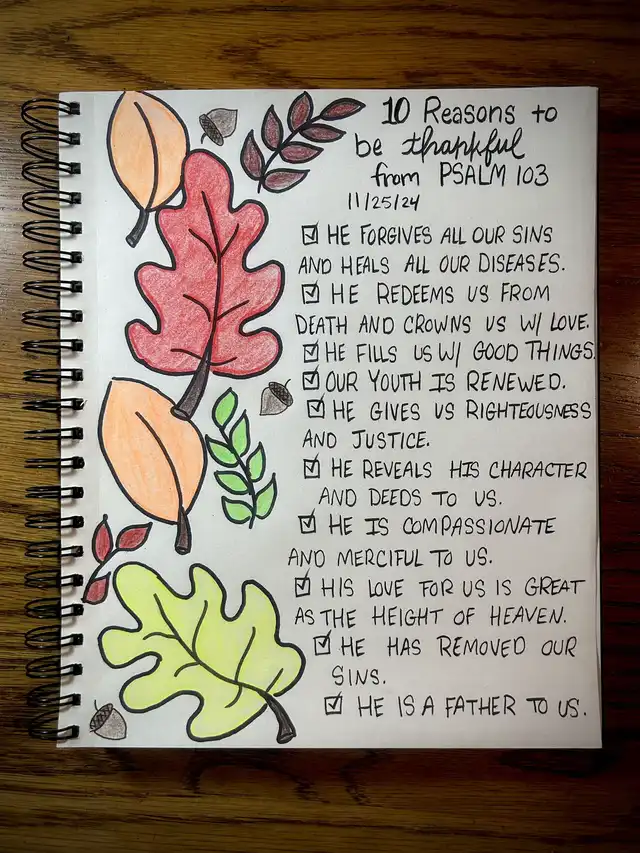 10 Reasons to
be thankful
from PSALM 103
11/25/24
☑ HE FORGIVES ALL OUR SINS
AND HEALS ALL OUR DISEASES.
☑ HE REDEEMS US FROM
DEATH AND CROWNS US W/ LOVE.
☑ HE FILLS US W/ GOOD THINGS.
☑ OUR YOUTH IS RENEWED.
☑ HE GIVES US RIGHTEOUSNESS
AND JUSTICE.
☑ HE REVEALS HIS CHARACTER
AND DEEDS TO US.
☑ HE IS COMPASSIONATE
AND MERCIFUL TO US.
☑ HIS LOVE FOR US IS GREAT
AS THE HEIGHT OF HEAVEN.
☑ HE HAS REMOVED OUR
SINS.
☑ HE IS A FATHER TO US.